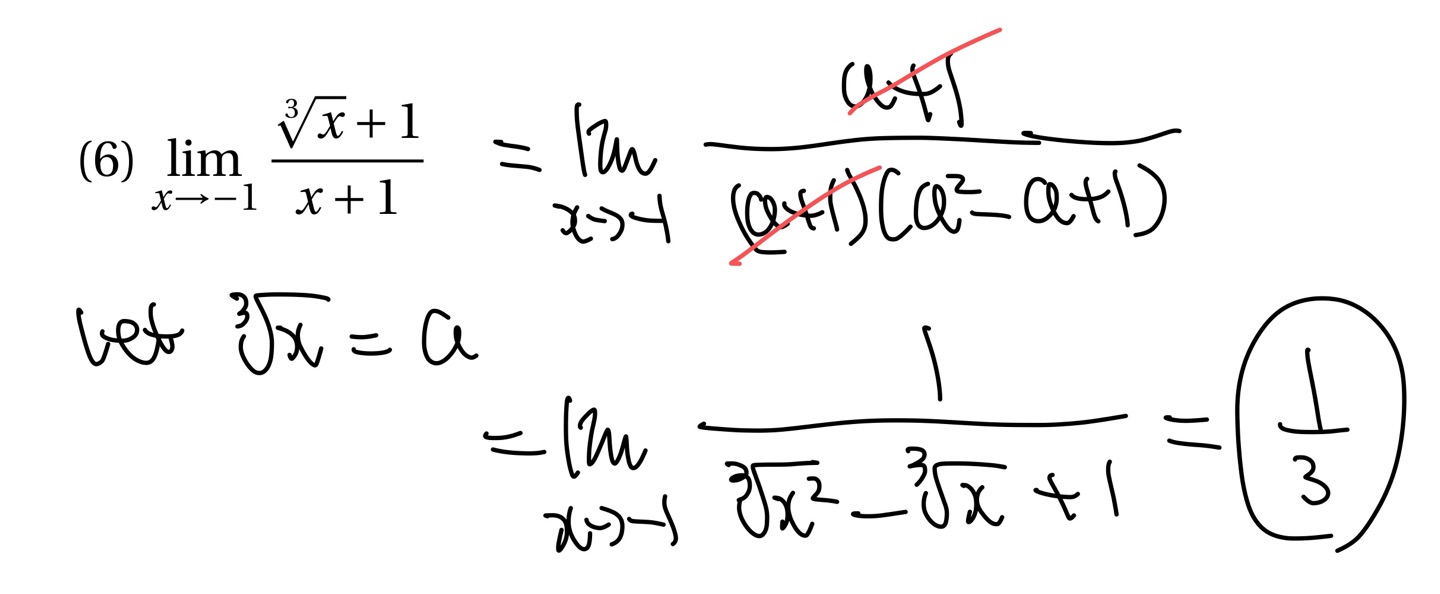 (6) lim_{x→-1} (∛x + 1)/(x + 1) = lim_{x→-1} (a+1)/((a+1)(a² - a + 1))
let ∛x = a
= lim_{x→-1} 1/(∛x² - ∛x + 1) = 1/3